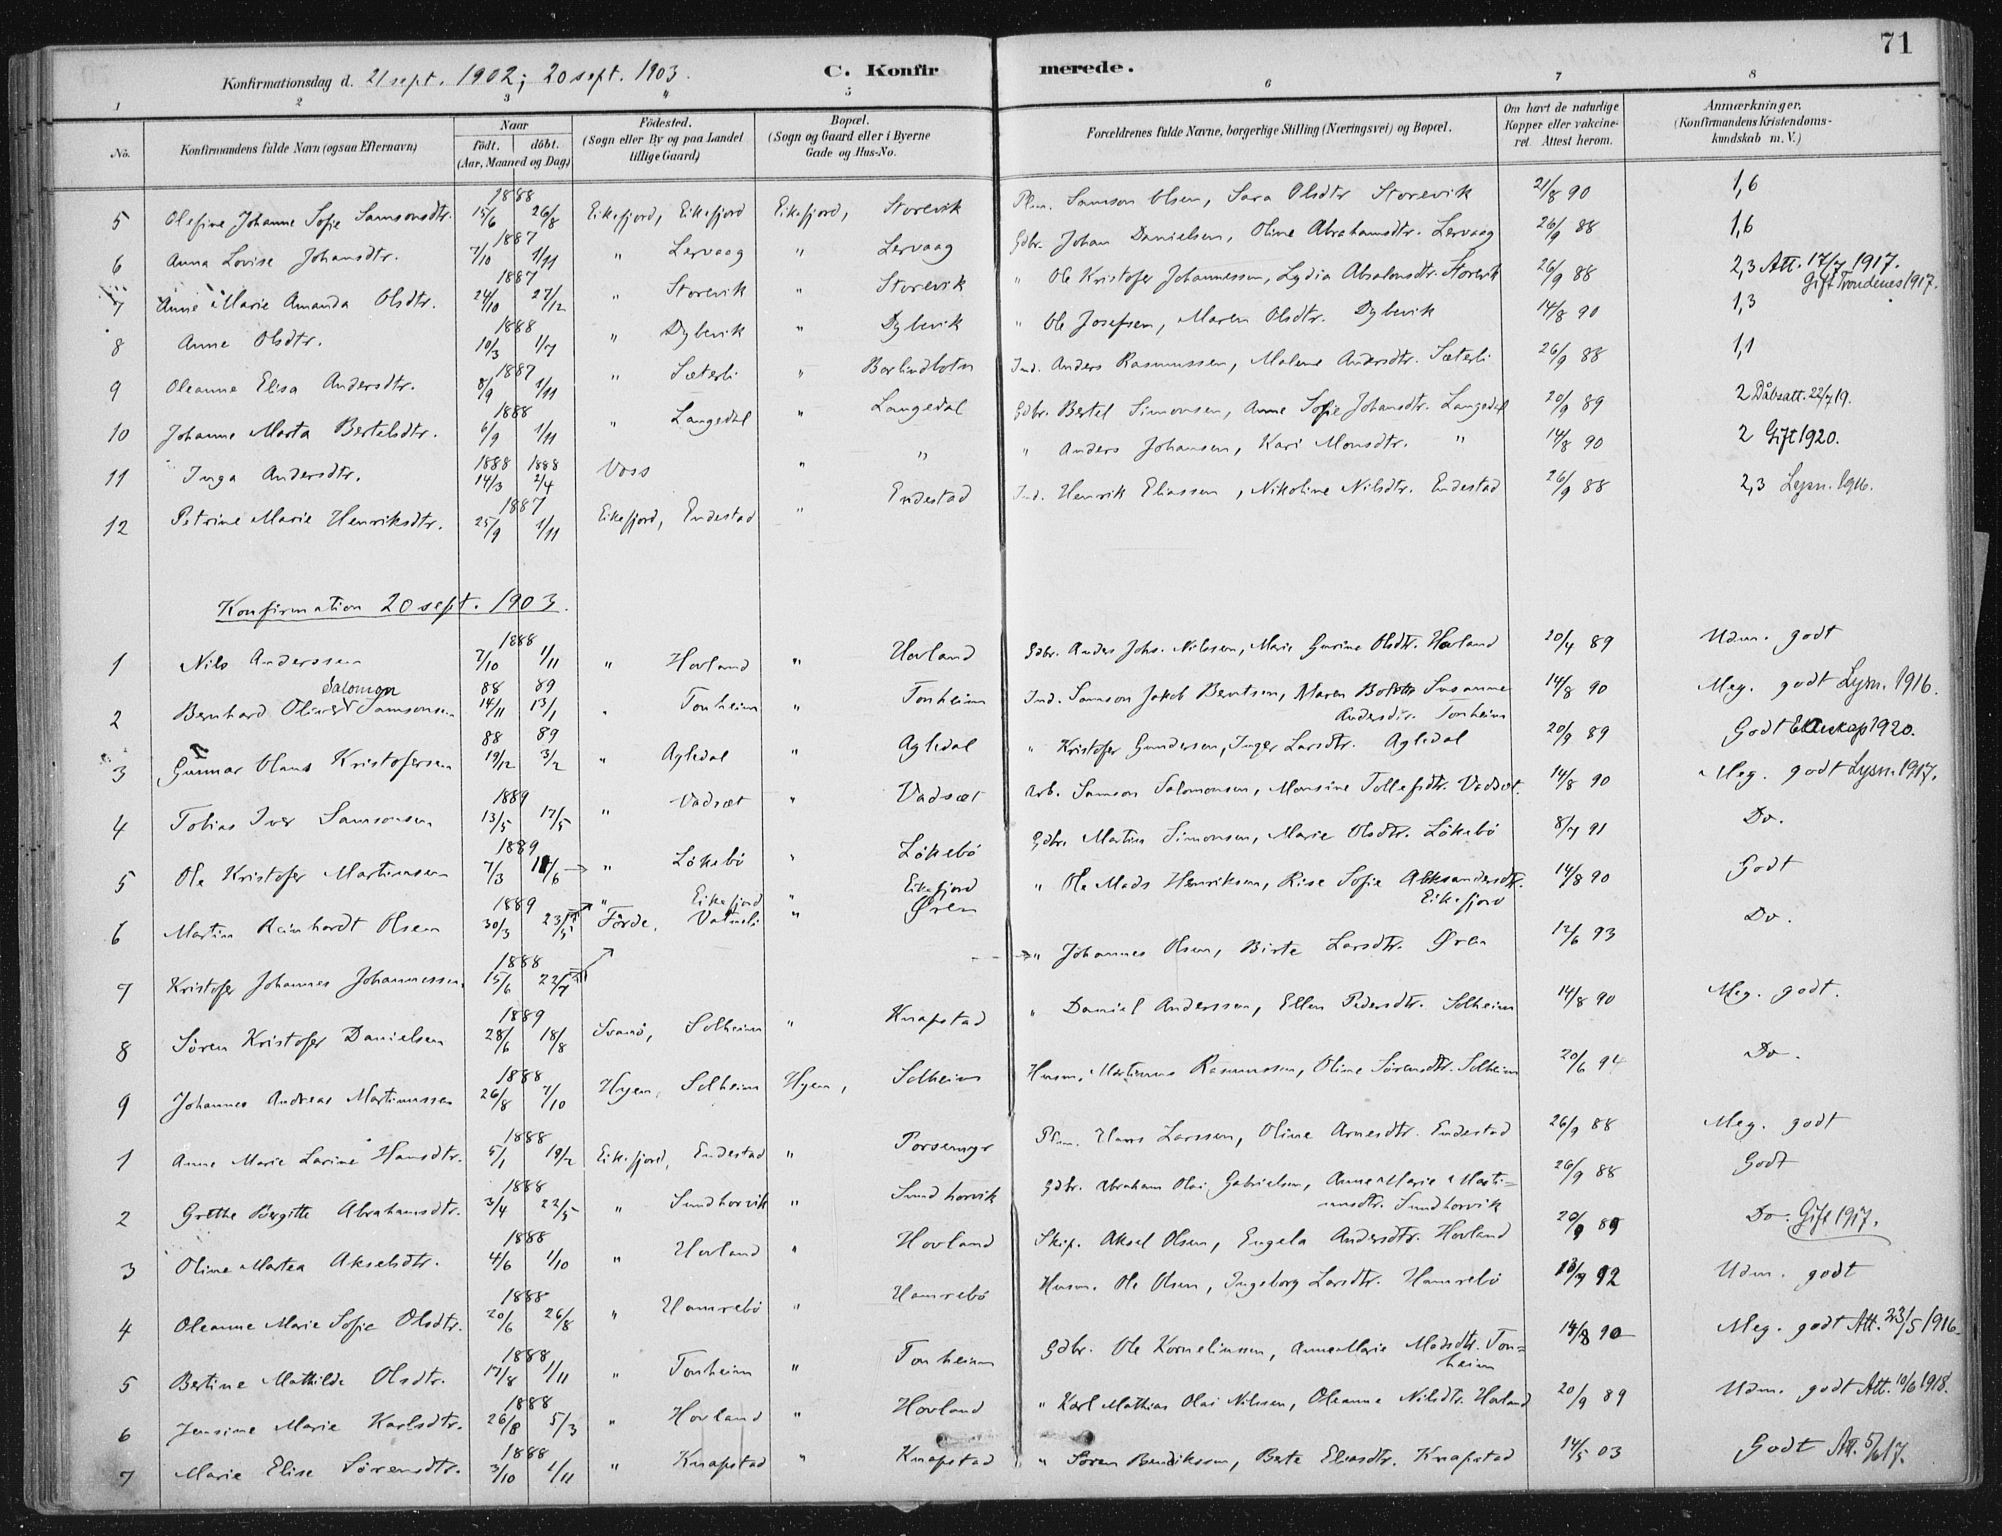 71
Konfirmationsdag d. 21 sept. 1902; 20 sept. 1903. C. Konfirmerede.
1 2 3 4 5 6 7 8
No. Konfirmandens fulde Navn (ogsaa Efternavn) Naar født. døbt. (Aar, Maaned og Dag) Födested. (Sogn eller By og paa Landet tillige Gaard) Bopæl. (Sogn og Gaard eller i Byerne Gade og Hus-No. Forældrenes fulde Navne, borgerlige Stilling (Næringsvei) og Bopæl. Om havt de naturlige Kopper eller vakcineret. Attest herom. Anmærkninger. (Konfirmandens Kristendomskundskab m. V.)
5 Olefine Johanne Sofie Samsonsdtr. 1888 15/6 26/8 Eikefjord, Eikefjord Eikefjord, Storevik Plm. Samson Olsen, Sara Olsdtr Storevik 21/8 90 1,6
6 Anna Lovise Johansdtr. 1887 7/10 1/11 " Lervaag " Lervaag Gdbr. Johan Danielsen, Oline Abrahamsdtr. Lervaag 26/9 88 1,6
7 Anne Marie Amanda Olsdtr. 1887 24/10 27/12 " Storevik " Storevik " Ole Kristofer Johannessen, Lydia Absalonsdtr. Storevik 26/9 88 2,3 Att. 17/7 1917. Gift Trondenes 1917.
8 Anne Olsdtr. 1888 10/3 1/7 " Dybevik " Dybevik " Ole Josefsen, Maren Olsdtr. Dybevik 14/8 90 1,3
9 Oleanne Elisa Andersdtr. 1887 8/9 1/11 " Sæterli " Borlindbotn Ind. Anders Rasmussen, Malene Andersdtr. Sæterli 26/9 88 1,1
10 Johanne Marta Bertelsdtr. 1888 6/9 1/11 " Langedal " Langedal Gdbr. Bertel Simonsen, Anne Sofie Johansdtr. Langedal 20/9 89 2 Dåbsatt. 22/7 19.
11 Inga Andersdtr. 1888 1888 14/3 2/4 Voss " " " Anders Johansen, Kari Monsdtr. " 14/8 90 2 Gift 1920.
12 Petrine Marie Henriksdtr. 1887 25/9 1/11 Eikefjord, Endestad " Endestad Ind. Henrik Eliassen, Nikoline Nilsdtr. Endestad 26/9 88 2,3 Lysn. 1916.
Konfirmation 20 sept. 1903.
1 Nils Anderssen 1888 7/10 1/11 " Hovland " Hovland Gdbr. Anders Johs. Nilssen, Marie Gurine Olsdtr. Hovland 20/4 89 Udm. godt
2 Bernhard Oliver Salomon Samsonsen 88 89 14/11 13/1 " Tonheim " Tonheim Ind. Samson Jakob Berntsen, Maren Susanne Andersdtr. Tonheim 14/8 90 Meg. godt Lysn. 1916.
3 Gunnar Olaus Kristofersen 88 89 19/12 3/2 " Agledal " Agledal " Kristofer Gundersen, Inger Larsdtr. Agledal 20/9 89 Godt 1920.
4 Tobias Iver Samsonsen 1889 13/5 17/5 " Vadsæt " Vadsæt Arb. Samson Salomonsen, Monsine Tollefsdtr. Vadsæt. 14/8 90 Meg. godt Lysn. 1917.
5 Ole Kristofer Martinusen 1889 7/3 11/6 " Lökebö " Lökebö Gdbr. Martin Simonsen, Marie Olsdtr. Lökebö 8/7 91 Do.
6 Martin Reinhardt Olsen 1889 30/3 23/5 " Eikefjord " Eikefjord " Ole Mads Henriksen, Rise Sofie Aleksandersdtr. Eikefjord 14/8 90 Godt
7 Kristofer Johannes Johannessen 1888 15/6 22/7 Förde, Vatneli " Øren " Johannes Olsen, Birte Larsdtr. Øren 12/6 93 Do.
8 Sören Kristofer Danielsen 1889 28/6 18/8 Svanö, Solheim " Knapstad " Daniel Anderssen, Ellen Pedersdtr. Solheim 14/8 90 Meg. godt.
9 Johannes Andreas Martinussen 1888 26/8 7/10 Hyen, Solheim Hyen, Solheim Husm. Martinus Rasmussen, Oline Sörensdtr. Solheim 20/6 94 Do.
1 Anne Marie Larine Hansdtr. 1888 5/1 19/2 Eikefjord, Endestad " Porsemyr Plm. Hans Larssen, Oline Arnesdtr. Endestad 26/9 88 Meg. godt
2 Grethe Bergitte Abrahamsdtr. 1888 3/4 22/5 " Sundhorvik " Sundhorvik Gdbr. Abraham Olai Gabrielsen, Anne Marie Martinusdtr. Sundhorvik 26/9 88 Godt
3 Oline Martea Akselsdtr. 1888 4/6 1/10 " Hovland " Hovland Skip. Aksel Olsen, Engela Andersdtr. Hovland 20/9 89 Do. Gift 1917.
4 Oleanne Marie Sofie Olsdtr. 1888 20/6 26/8 " Hamrebö " Hamrebö Husm. Ole Olsen, Ingeborg Larsdtr. Hamrebö 13/7 92 Udm. godt
5 Bertine Mathilde Olsdtr. 1888 17/8 1/11 " Tonheim " Tonheim Gdbr. Ole Korneliussen, Anne Marie Madsdtr. Tonheim 14/8 90 Meg. godt Att. 23/5 1916.
6 Jensine Marie Karlsdtr. 1888 26/8 5/3 " Hovland " Hovland " Karl Mathias Olai Nilssen, Oleanne Nilsdtr. Hovland 20/9 89 Udm. godt Att. 10/6 1918.
7 Marie Elise Sörensdtr. 1888 3/10 1/11 " Knapstad " Knapstad " Sören Bendiksen, Berte Eliasdtr. Knapstad 14/5 03 Godt Att. 5/6 17.